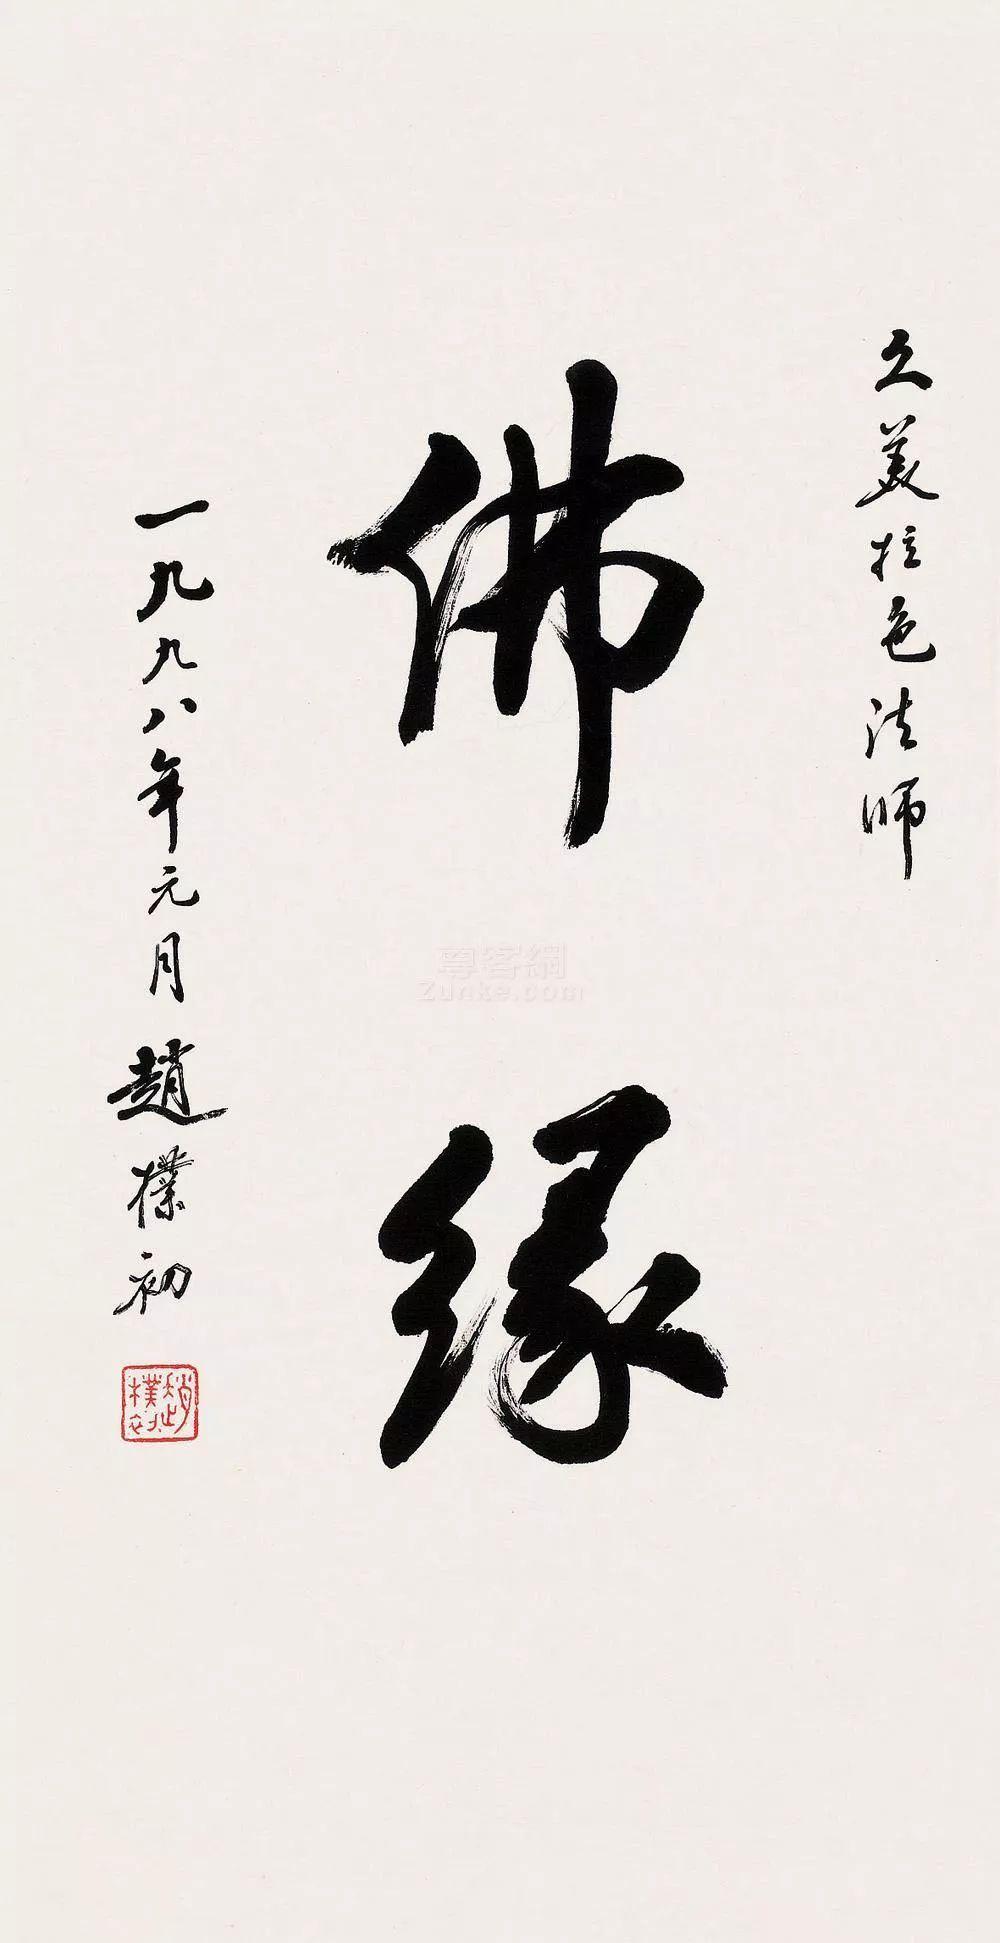 久美拉色法师
佛缘
一九九八年元月 趙樸初
趙樸初
尊客網
Zunke.com